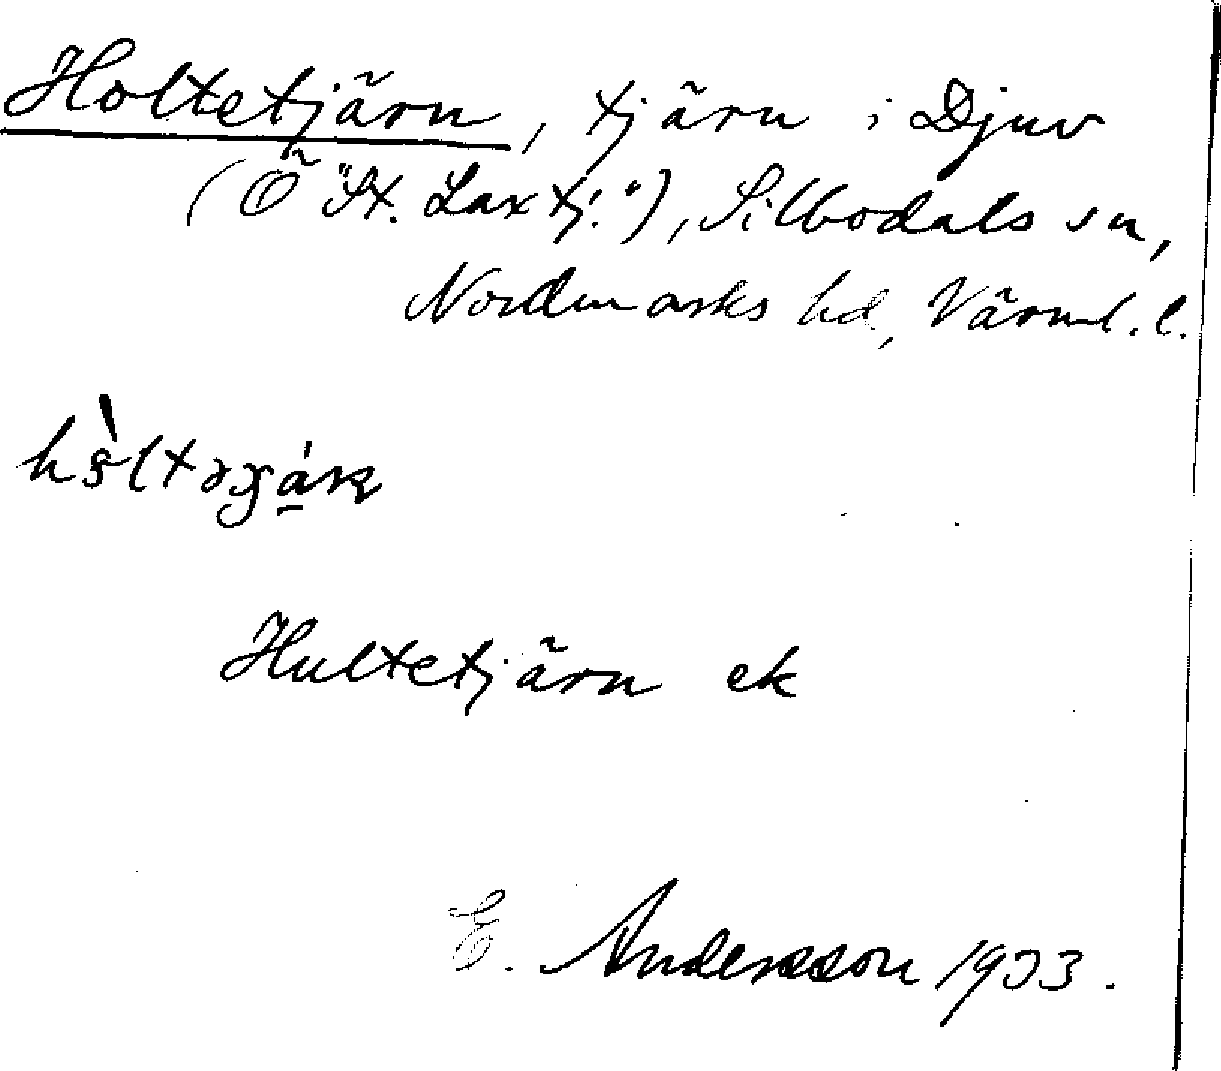 Holtetjärn, tjärn i Djuv
(Ö "St. Lax tj."), Silbodals sn,
Nordmarks hd, Värml. l.
Hultetjärn ek
E. Andersson 1933.